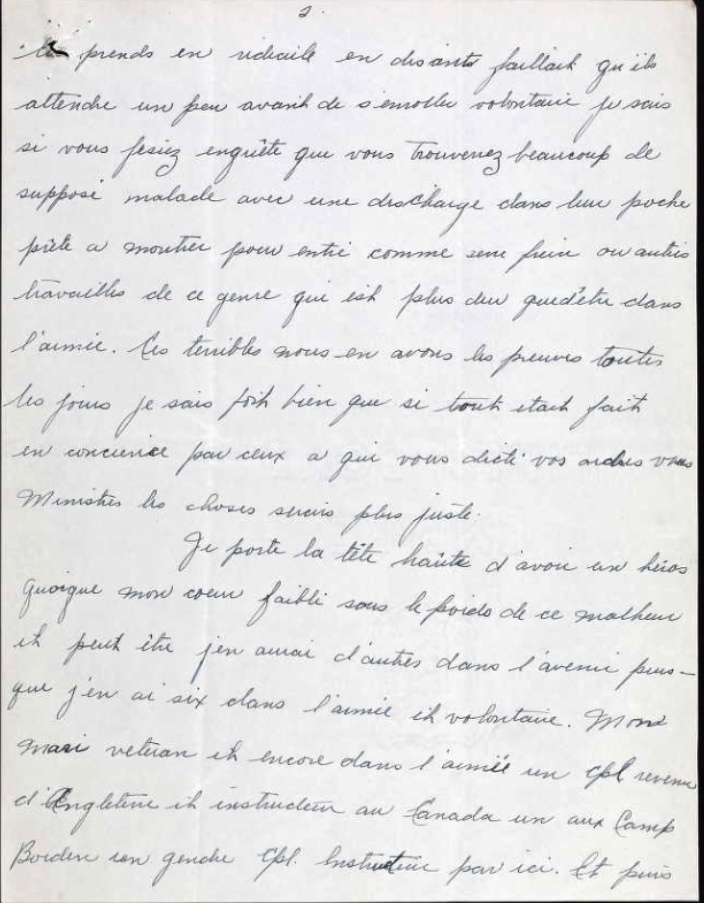 2.
les prends en ridicule en disants faillait qu'ils
attendre un peu avant de s'enroller volontaire je sais
si vous fesiez enquête que vous trouverez beaucoup de
supposé malade avec une discharge dans leur poche
prête a montrer pour entré comme
travailles de ce genre qui est plus dur qued'être dans
l'armée. Ces terribles nous en avons les preuves toutes
les jours je sais fort bien que si tout etait fait
en concience par ceux a qui vous dicté vos ordres vous
Ministres les choses serais plus juste.
Je porte la tête haute d'avoir un héros
quoique mon coeur faibli sous le poids de ce malheur
et peut être j'en aurai d'autres dans l'avenir puis-
que j'en ai six dans l'armée et volontaire. Mon
mari veteran et encore dans l'armée un Cpl revenu
d'Angleterre et instructeur au Canada un aux Camp
Borden un gendre Cpl. Instructeur par ici. Et puis